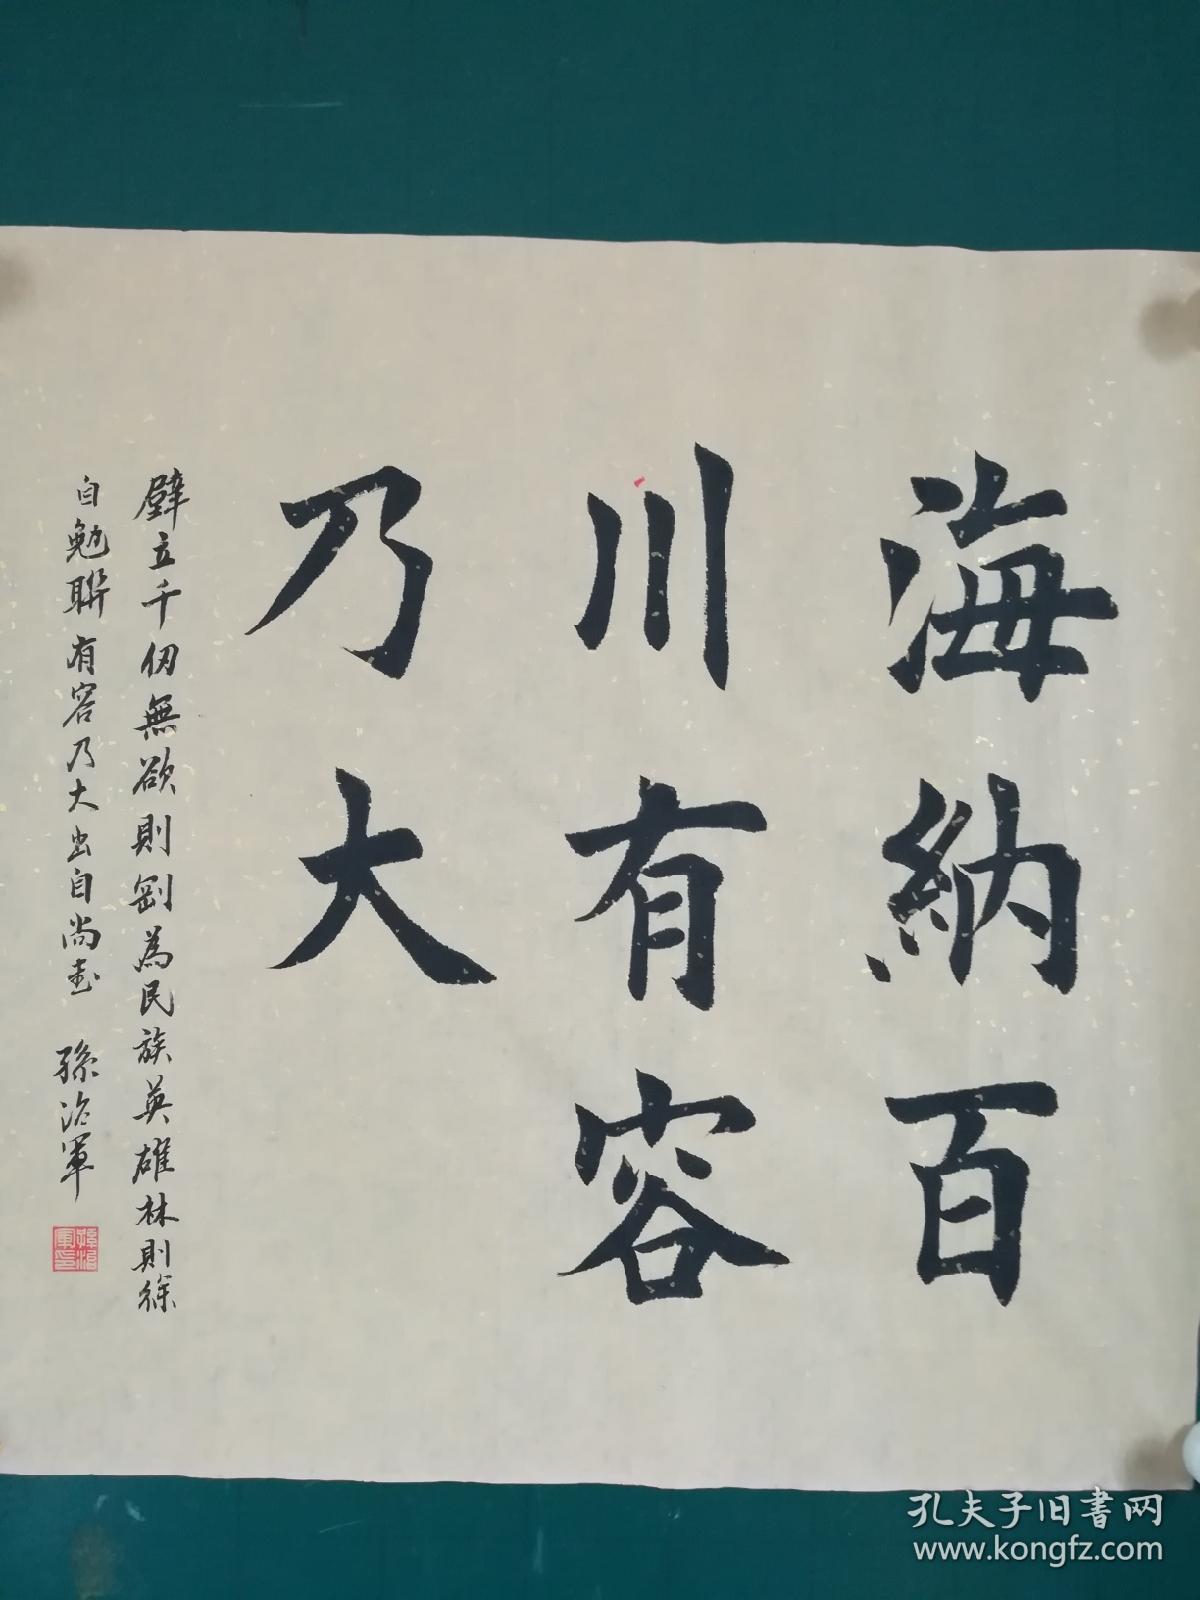 海納百
川有容
乃大
壁立千仞無欲則剛為民族英雄林則徐
自勉聯有容乃大出自尚書 孫治軍
孫治軍印
孔夫子旧書网
www.kongfz.com